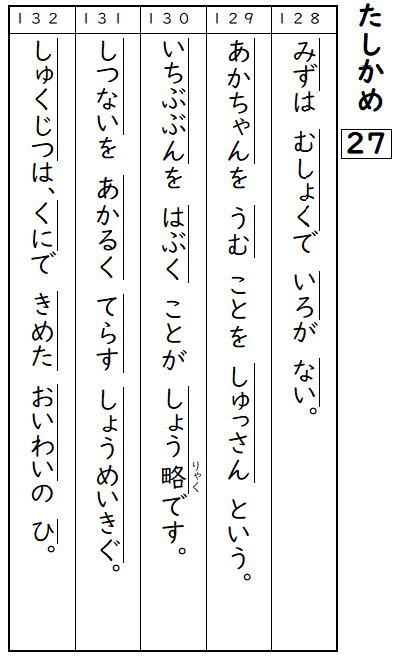 たしかめ
27
128
みずは むしょくで いろが ない。
129
あかちゃんを うむ ことを しゅっさん という。
130
いちぶぶんを はぶく ことが しょう略です。
りゃく
131
しつないを あかるく てらす しょうめいきぐ。
132
しゅくじつは、くにで きめた おいわいの ひ。